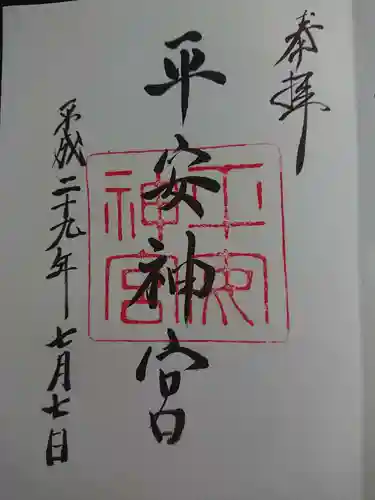 奉拝
平安神宮
平安神宮
平成二十九年七月七日